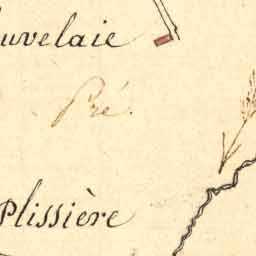 uvelaie
Pré.
Plissière